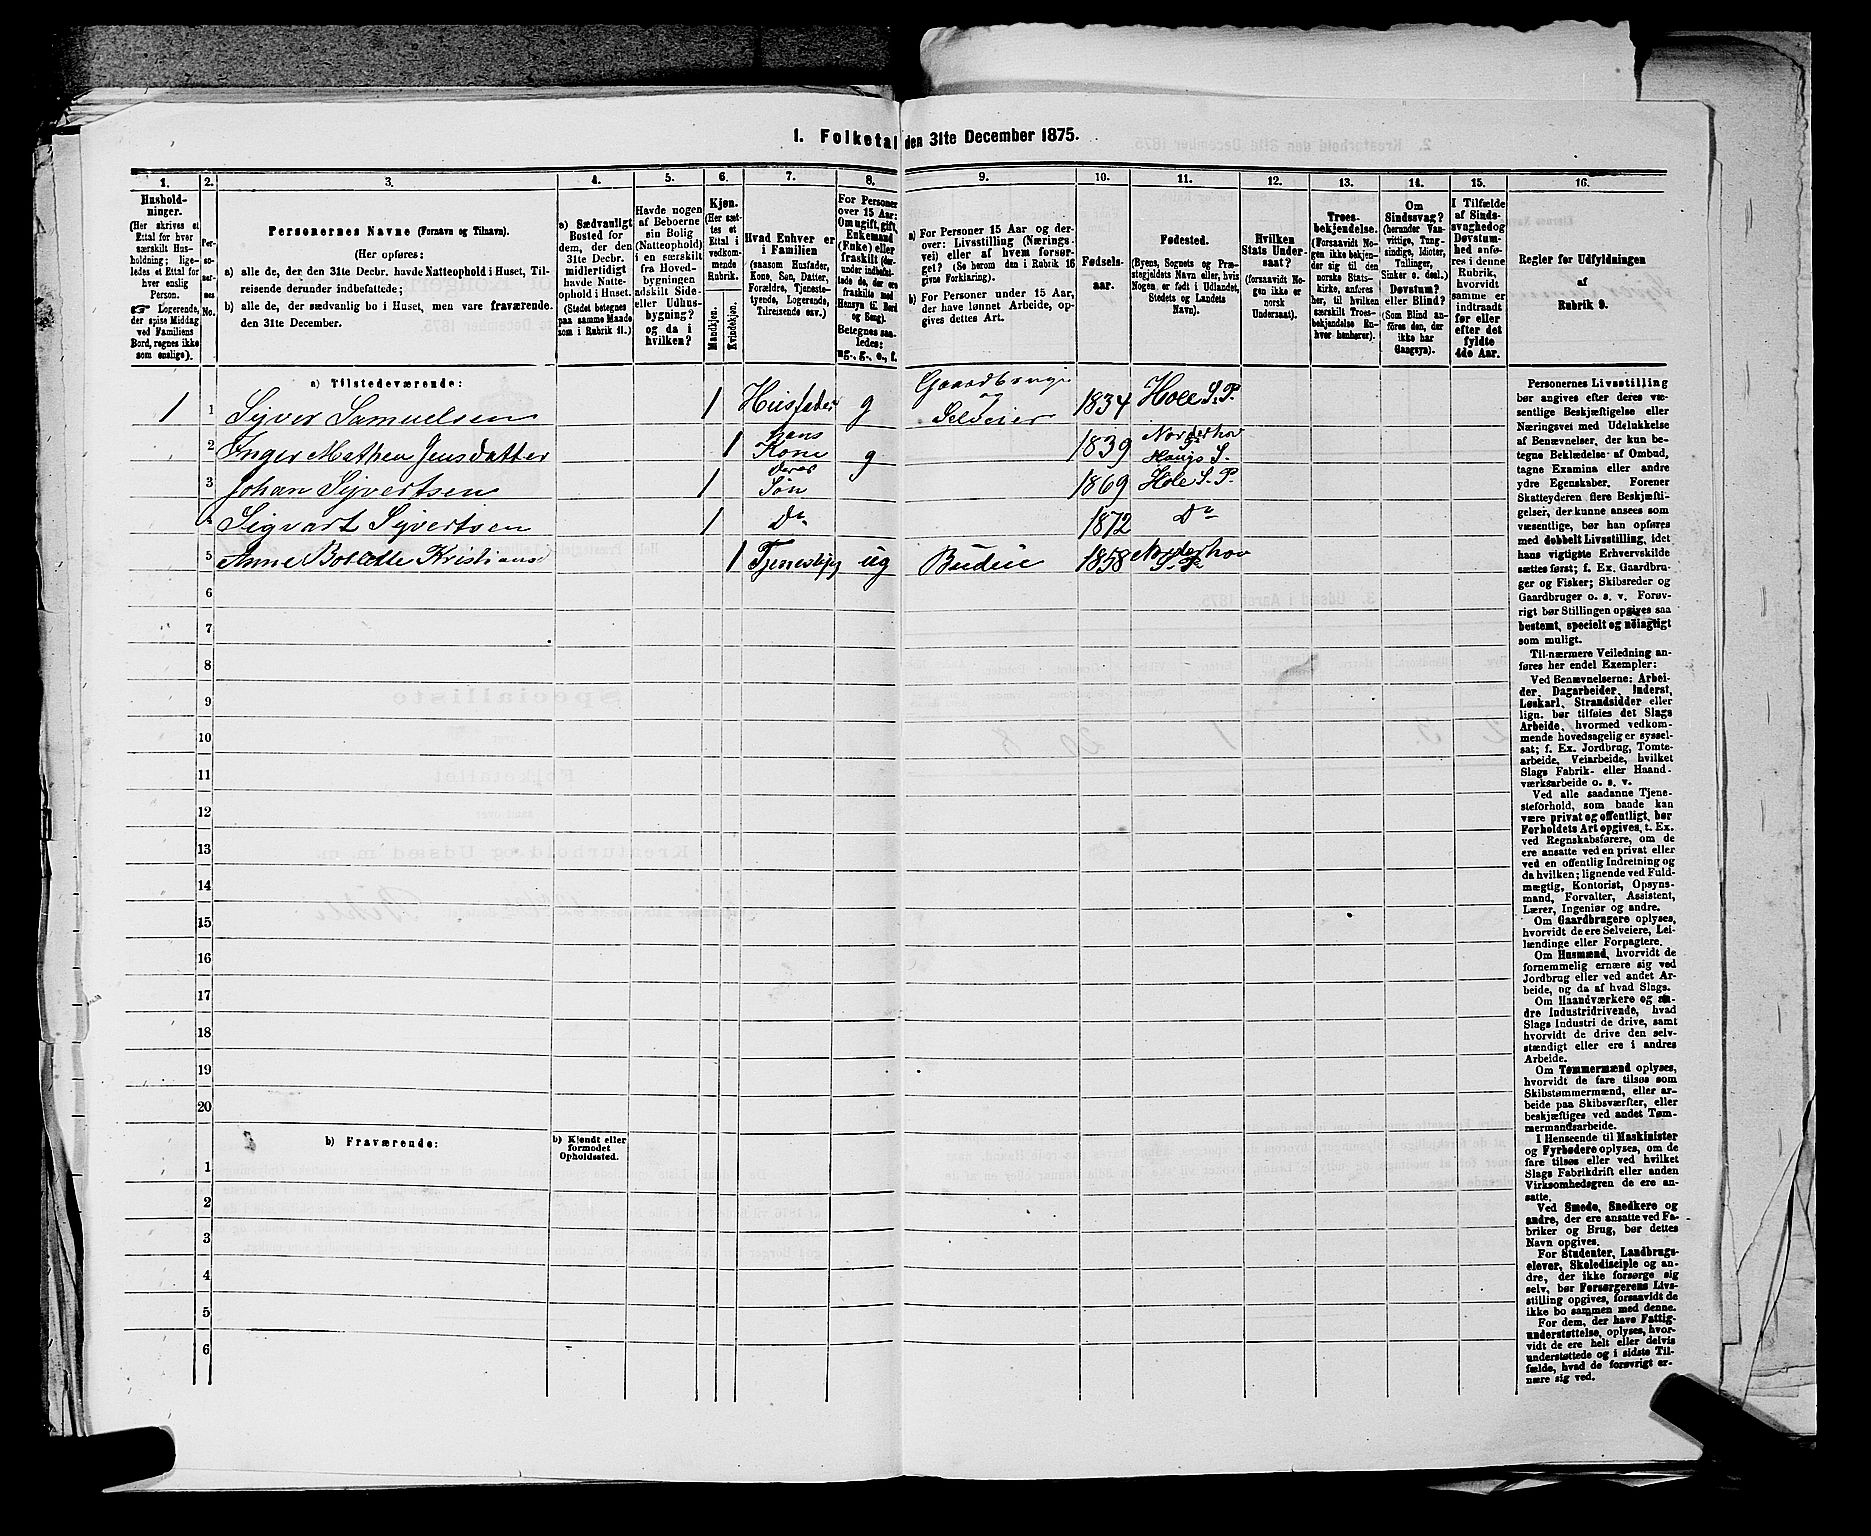 1. Folketal den 31te December 1875.
1. 2. 3. 4. 5. 6. 7. 8. 9. 10. 11. 12. 13. 14. 15. 16.
Husholdninger.
(Her skrives et
Ettal for hver
særskilt Husholdning;
ligeledes et Ettal for
hver enslig
Person.
☞ Logerende,
der spise Middag
ved Familiens
Bord, regnes ikke
som enslige).
Personernes No.
Personernes Navne (Fornavn og Tilnavn).
(Her opføres:
a) alle de, der den 31te Decbr. havde Natteophold i Huset, Tilreisende derunder indbefattede;
b) alle de, der sædvanlig bo i Huset, men vare fraværende den 31te December.
a) Sædvanligt
Bosted for
dem, der den
31te Decbr.
midlertidigt
havde Natteophold
i Huset.
(Stedet betegnes
paa samme Maade
som i Rubrik 11.)
Havde nogen
af Beboerne
sin Bolig
(Natteophold)
i en særskilt
fra Hovedbygningen
adskilt Side-
eller Udhusbygning?
og da i
hvilken?
Kjøn.
(Her sættes
et
Ettal i
vedkommende
Rubrik.
Mandkjøn.
Kvindekjøn.
Hvad Enhver er
i Familien
(saasom Husfader,
Kone, Søn, Datter,
Forældre, Tjenestetyende,
Logerende,
Tilreisende osv.)
For Personer
over 15 Aar:
Om ugift, gift,
Enkemand
(Enke) eller
fraskilt
Betegnes saaledes:
ug., g., e., f.
a) For Personer 15 Aar og derover: Livsstilling (Næringsvei) eller af hvem forsørget? (Se herom den i Rubrik 16 givne Forklaring).
b) For Personer under 15 Aar, der have lønnet Arbeide, opgives dettes Art.
Fødselsaar.
Fødested.
(Byens, Sognets og Præstegjeldets
Navn eller, hvis
Nogen er født i Udlandet,
Stedets og Landets
Navn).
Hvilken
Stats Undersaat?
(forsaavidt Nogen
ikke er
norsk
Undersaat).
Troesbekjendelse.
(Forsaavidt Nogen
ikke bekjender
sig til den
norske Statskirke,
anføres
her, til hvilken
særskilt Troesbekjendelse
Enhver
henhører).
Om
Sindssvag?
(herunder Vanvittige,
Tungsindige,
Idioter,
Tullinger,
Sinker o. desl.)
Døvstum?
eller Blind?
(Som Blind anføres
den, der
ikke har
Gangsyn).
I Tilfælde
af Sindssvaghed
og
Døvstumhed
anføres
i denne
Rubrik,
hvorvidt
samme er
indtraadt
før eller
efter det
fyldte
4de Aar.
Regler for Udfyldningen
af
Rubrik 9.
a) Tilstedeværende:
1 1 Syver Samuelsen 1 Husfader g Gaardbruger og Selveier 1834 Hole S. P.
2 Inger Mathea Jensdatter 1 hans Kone g 1839 Norderhov Haugs S.
3 Johan Syvertsen 1 deres Søn 1869 Hole S. P.
4 Sigvart Syvertsen 1 Do 1872 Do
5 Anne Bollette Kristians 1 Tjenestpig ug Budeie 1858 Norderhov S. P.
6
7
8
9
10
11
12
13
14
15
16
17
18
19
20
b) Fraværende:
b) Kjendt eller
formodet
Opholdssted.
1
2
3
4
5
6
Personernes Livsstilling
bør angives efter deres væsentlige
Beskjæftigelse eller
Næringsvei med Udelukkelse
af Benævnelser, der kun betegne
Beklædelse af Ombud,
tagne Examina eller andre
ydre Egenskaber. Forener
Skatteyderen flere Beskjæftigelser,
der kunne ansees som
væsentlige, bør han opføres
med dobbelt Livsstilling, idet
hans vigtigste Erhvervskilde
sættes først; f. Ex. Gaardbruger
og Fisker; Skibsreder og
Gaardbruger o. s. v. Forøvrigt
bør Stillingen opgives saa
bestemt, specielt og nøiagtigt
som muligt.
Til nærmere Veiledning anføres
her endel Exempler:
Ved Benævnelserne: Arbeider,
Dagarbeider, Inderst,
Løskarl, Strandsidder eller
lign. bør tilføies det Slags
Arbeide, hvormed vedkommende
hovedsagelig er sysselsat;
f. Ex. Jordbrug, Tomtearbeide,
Veiarbeide, hvilket
Slags Fabrik- eller Haandværksarbeide
o. s. v.
Ved alle saadanne Tjenesteforhold,
som baade kan
være privat og offentligt, bør
Forholdets Art opgives, t. Ex.
ved Regnskabsførere, om de
ere ansatte ved en privat eller
ved en offentlig Indretning og
da hvilken; lignende ved Fuldmægtig,
Kontorist, Opsynsmand,
Forvalter, Assistent,
Lærer, Ingeniør og andre.
Om Gaardbrugere oplyses,
hvorvidt de ere Selveiere, Leilændinge
eller Forpagtere.
Om Husmænd, hvorvidt de
fornemmelig ernære sig ved
Jordbrug eller ved andet Arbeide,
og da af hvad Slags.
Om Haandværkere og andre
Industridrivende, hvad
Slags Industri de drive, samt
hvorvidt de drive den selvstændigt
eller ere i andres
Arbeide.
Om Tømmermænd oplyses,
hvorvidt de fare tilsøs som
Skibstømmermænd, eller arbeide
paa Skibsværfter, eller
beskjæftiges ved andet Tømmermandsarbeide.
I Henseende til Maskinister
og Fyrbødere oplyses, om de
fare tilsøs eller ved hvilket
Slags Fabrikdrift eller anden
Virksomhedsgren de ere ansatte.
Ved Smede, Snedkere og
andre, der ere ansatte ved Fabriker
og Brug, bør dettes
Navn opgives.
For Studenter, Landbrugselever,
Skoledisciple og andre,
der ikke forsørge sig
selv, bør Forsørgerens Livsstilling
opgives, forsaavidt de
ikke bo sammen med denne.
For dem, der have Fattigunderstøttelse,
oplyses, hvorvidt
de ere helt eller delvis
understøttede og i sidste Tilfælde,
hvad de forøvrigt ernære
sig ved.